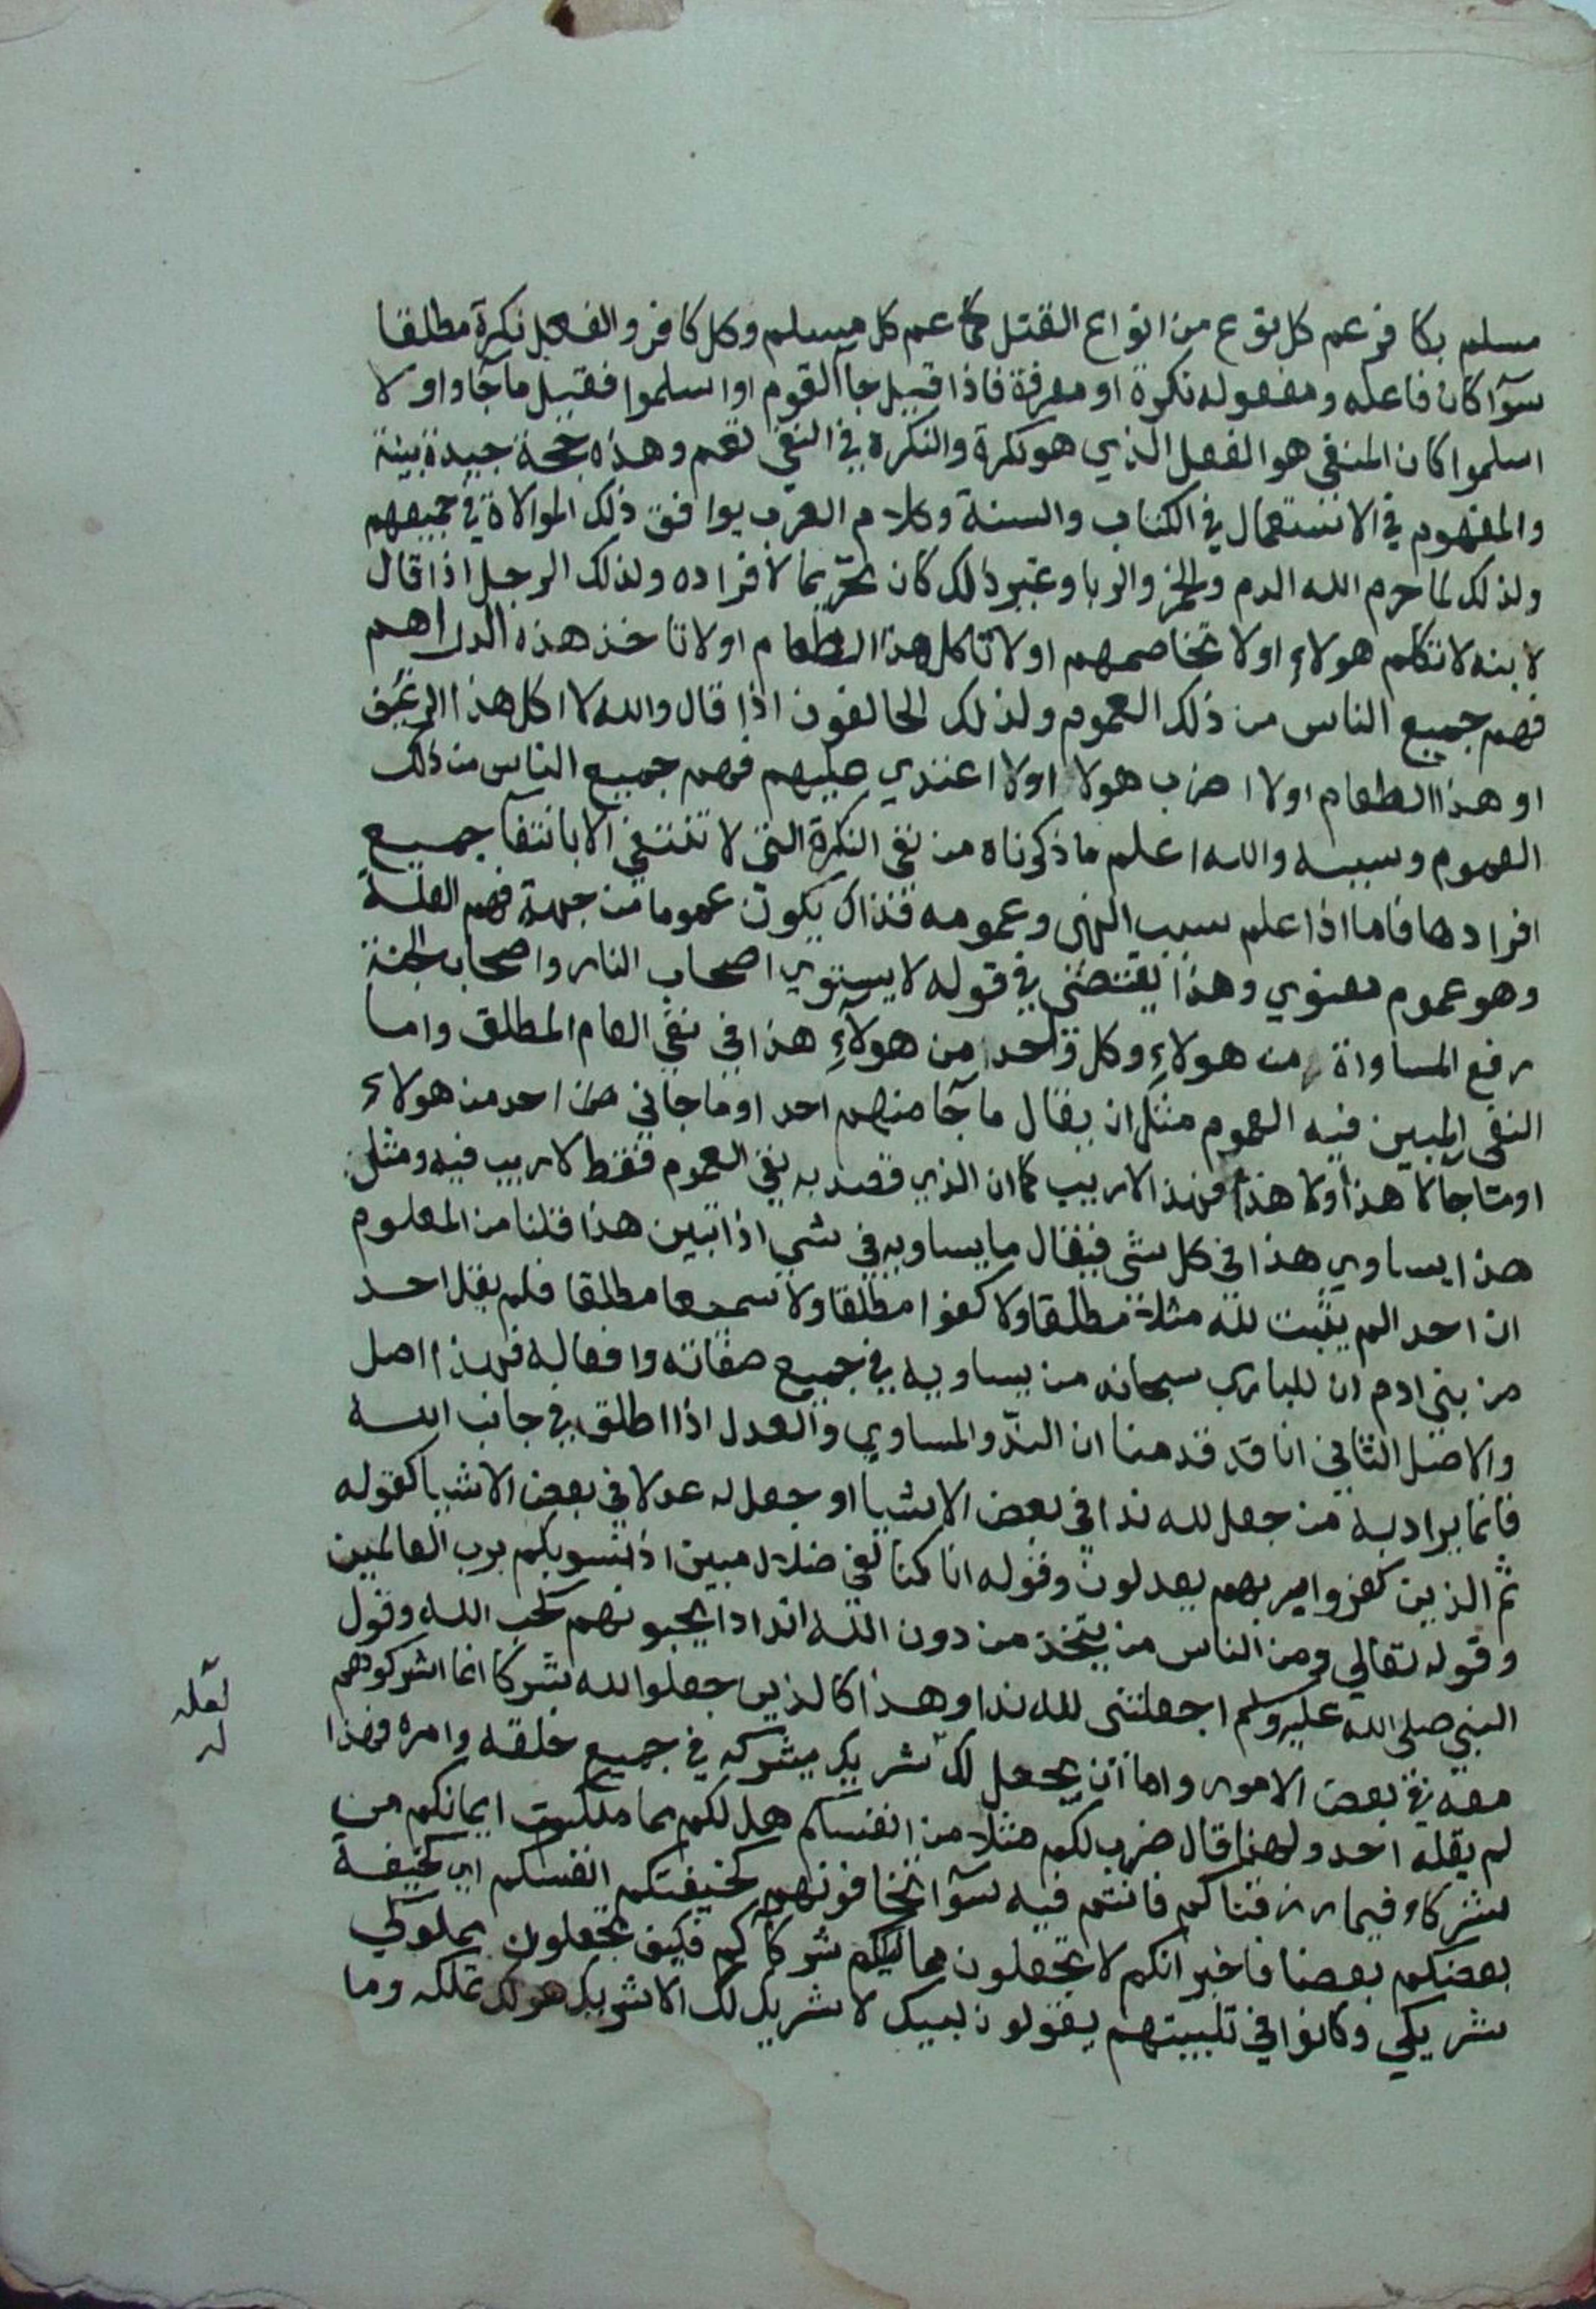 مسلم بكافر عم كل نوع من انواع القتل كما عم كل مسلم وكل كافر والفعل نكرة مطلقا
سوآ كان فاعله ومفعوله نكرة او معرفة فاذا قيل جآ القوم او اسلموا فقيل ما جآؤا ولا
اسلموا كان المنفي هو الفعل الذي هو نكرة والنكرة في النفي تعم وهذه حجة جيدة بينة
والمفهوم في الاستعمال في الكتاب والسنة وكلام العرب يوافق ذلك الموالاة في جميعهم
ولذلك لما حرم الله الدم والخمر والربا وغير ذلك كان تحريما لافراده ولذلك الرجل اذا قال
لابنه لا تكلم هولاء او لا تخاصمهم او لا تاكل هذا الطعام او لا تاخذ هذه الدراهم
فهم جميع الناس من ذلك العموم ولذلك الحالفون اذا قال والله لا اكل هذا الرغيف
او هذا الطعام او لا اضرب هولا او لا اعتدي عليهم فهم جميع الناس من ذلك
العموم وسببه والله اعلم ما ذكرناه من نفي النكرة التي لا تنتفي الا بانتفآ جميع
افرادها فاما اذا علم سبب النهي وعمومه فذاك يكون عموما من جهة فهم العلة
وهو عموم معنوي وهذا يقتضي في قوله لا يستوي اصحاب النار واصحاب الجنة
رفع المساواة من هولاء وكل واحد من هولآء هذا في نفي العام المطلق واما
النفي المبين فيه العموم مثل ان يقال ما جآ منهم احد او ما جاني احد من هولاء
او ما جا لا هذا ولا هذا فهذا لا ريب كما ان الذي قصد به نفي العموم فقط لا ريب فيه ومثل
هذا يساوي هذا في كل شي فيقال ما يساويه في شي اذا تبين هذا قلنا من المعلوم
ان احدا لم يثبت لله مثلا مطلقا ولا كفوا مطلقا ولا سميعا مطلقا فلم يقل احد
من بني ادم ان للباري سبحانه من يساويه في جميع صفاته وافعاله فهذا اصل
والاصل الثاني انا قد قدمنا ان الندّ والمساوي والعدل اذا اطلق في جانب الله
فانما يراد به من جعل لله ندا في بعض الاشيا او جعل له عدلا في بعض الاشيا كقوله
ثم الذين كفروا بربهم يعدلون وقوله انا كنا لفي ضلال مبين اذ نسويكم برب العالمين
وقوله تعالي ومن الناس من يتخذ من دون الله اندادا يحبونهم كحب الله وقول
النبي صلى الله عليه وسلم اجعلتني لله ندا وهذا كالذين جعلوا لله شركا انما اشركوهم
معه في بعض الامور واما ان يجعل لك شريك يشركه في جميع خلقه وامره فهذا
لعله
له
لم يقله احد ولهذا قال ضرب لكم مثلا من انفسكم هل لكم مما ملكت ايمانكم من
شركاء فيما رزقناكم فانتم فيه سوآ تخافونهم كخيفتكم انفسكم اي كخيفة
بعضكم بعضا فاخبر انكم لا تجعلون مماليككم شركآكم فكيف تجعلون مملوكي
شريكي وكانوا في تلبيتهم يقولون لبيك لا شريك لك الا شريك هو لك تملكه وما